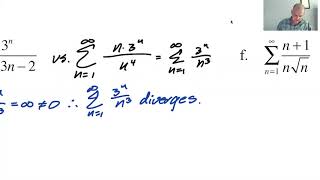 3ⁿ / 3n − 2 vs. ∞ Σ n=1 n·3ⁿ / n⁴ = ∞ Σ n=1 3ⁿ / n³ f. ∞ Σ n=1 n+1 / n√n
3 / n³ = ∞ ≠ 0 ∴ ∞ Σ n=1 3ⁿ / n³ diverges.